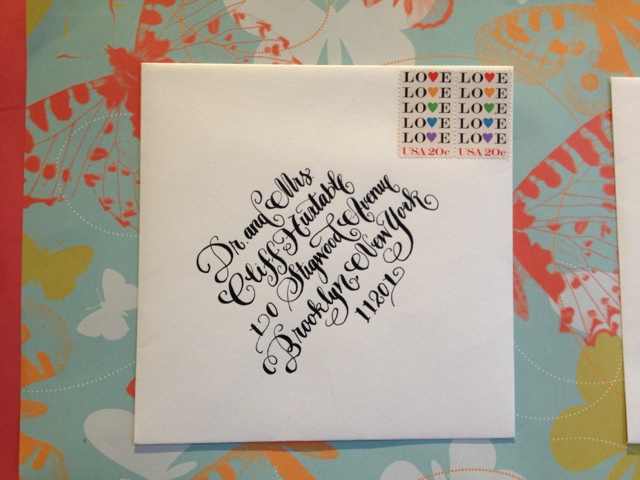 LOVE LOVE
LOVE LOVE
LOVE LOVE
LOVE LOVE
LOVE LOVE
USA 20c USA 20c
Dr. and Mrs
Cliff Huxtable
10 Stigwood Avenue
Brooklyn New York
11201